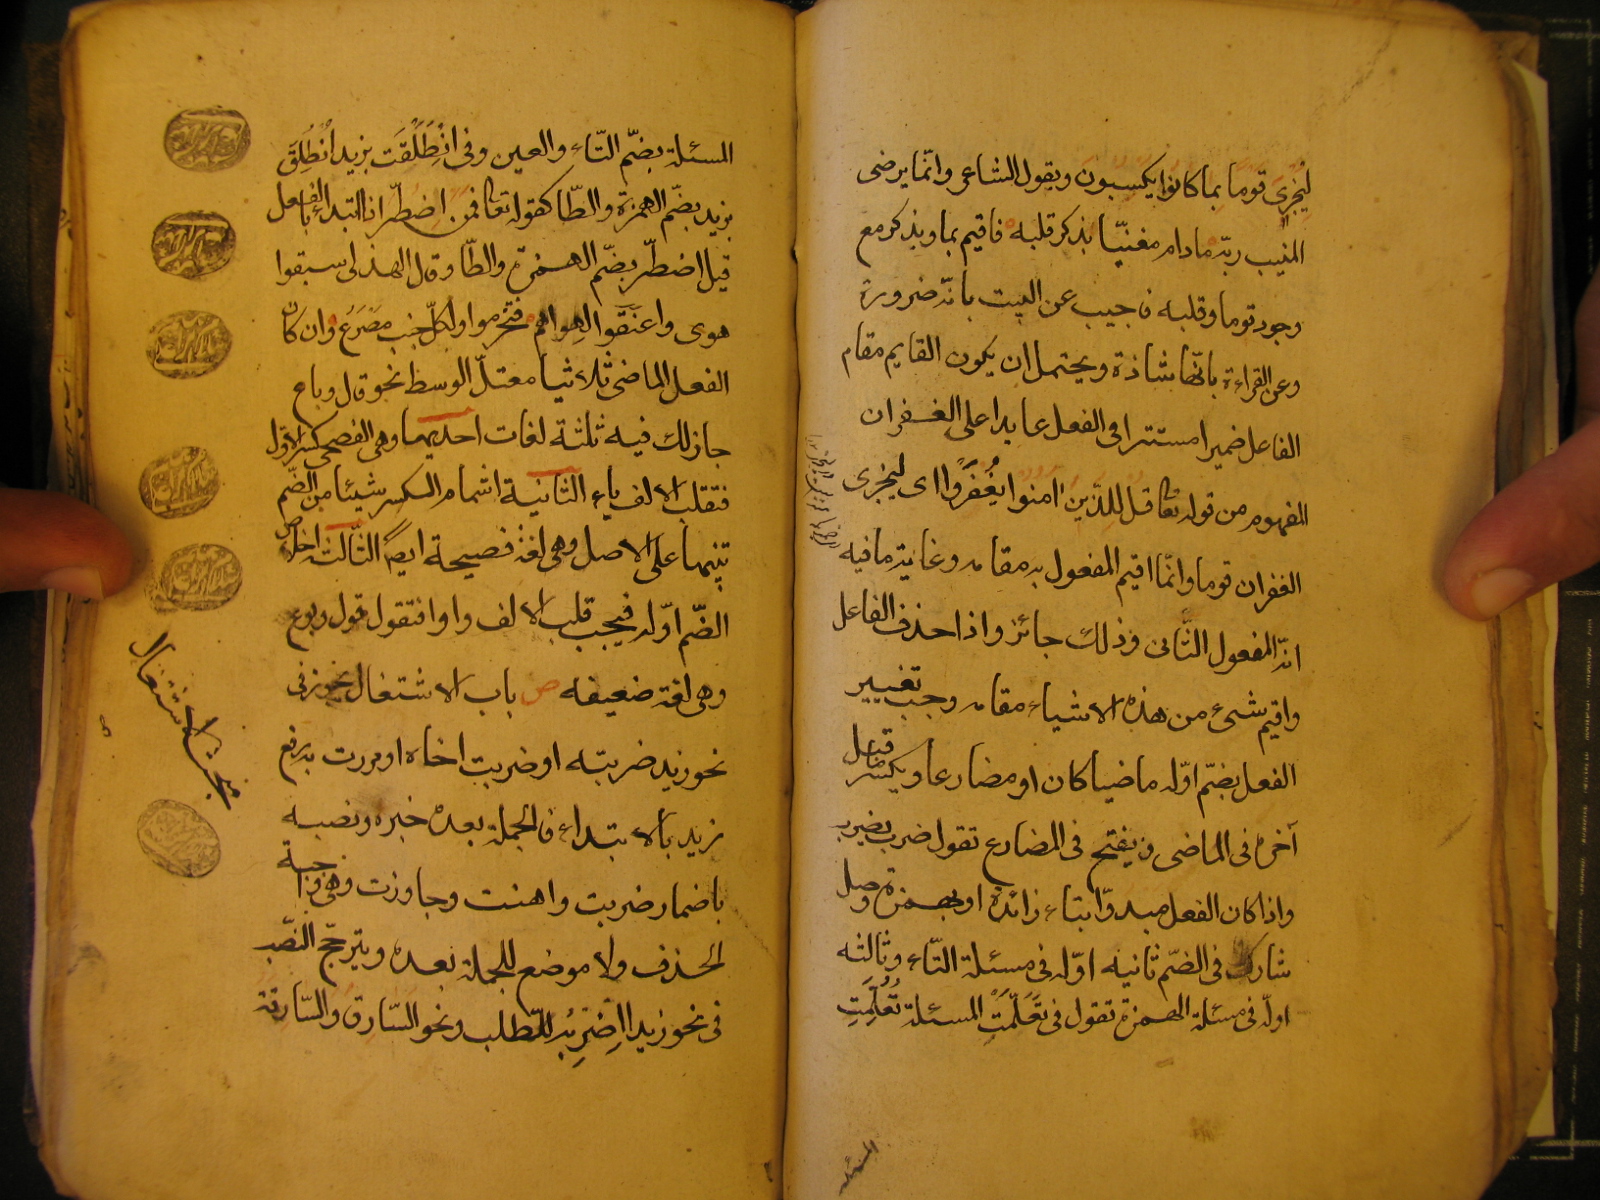 ليُجزَى قومًا بما كانوا يكسبون ويقول الشاعر وانّما يرضى
المنيب ربّه مادام معنيّا بذكر قلبه فاقيم بما وبذكر مع
وجود قوما وقلبه فاجيب عن البيت بانّه ضرورة
وعن القراءة بانّها شاذة ويحتمل ان يكون القايم مقام
الفاعل ضميرا مستترا فى الفعل عايدا على الغفران
المفهوم من قوله تعا قل للذين امنوا يغفروا اى ليجزى
الغفران قوما وانّما اقيم المفعول به مقامه وغاية ما فيه
انّه المفعول الثّانى وذلك جائز واذا حذف الفاعل
واقيم شىء من هذه الاشياء مقامه وجب تغيير
الفعل بضمّ اوّله ماضيا كان او مضارعا ويكسر ما قبل
آخره فى الماضى ويفتح فى المضارع تقول ضرب يضرب
واذا كان الفعل مبدوّا بتاء زائدة او بهمزة وصل
شارك فى الضّم ثانيه اوّله فى مسئلة التّاء وثالثه
اولّه فى مسئلة الهمزة تقول فى تَعَلَّمتِ المسئلة تُعُلِّمَتِ
المسئلة
المسئلة بضمّ التّاء والعين وفى انطلقت بزيد انطلق
بزيد بضمّ الهمزة والطّا كقوله تعا فمن اضطّر اذا ابتدا بالفعل
قيل اضطّر بضمّ الهمزة والطّا وقال الهذلى سبقوا
هوى واعنقوا لهواهم فتخرموا ولكلّ جنب مصرع وان كان
الفعل الماضى ثلاثيا معتلّ الوسط نحو قال وباع
جاز لك فيه ثلثة لغات احديها وهى الفصحى كسر الاوّل
فتقلب الالف ياء الثانية اشمام الكسر شيئا من الضّم
تنبيها على الاصل وهى لغة فصيحة ايضا الثّالث اخلاص
الضّم اوّله فيجب قلب الالف واوا فتقول قول وبوع
وهى لغة ضعيفه ص باب الاشتغال يجوز فى
نحو زيد ضربته او ضربت اخاه او مررت به رفع
زيد بالابتداء فالجملة بعده خبره ونصبه
باضمار ضربت واهنت وجاوزت وهى واجبة
الحذف ولا موضع للجملة بعده ويترجّح النّصب
فى نحو زيدا اضربه للطّلب ونحو السّارق والسّارقة
مبحث الاشتغال